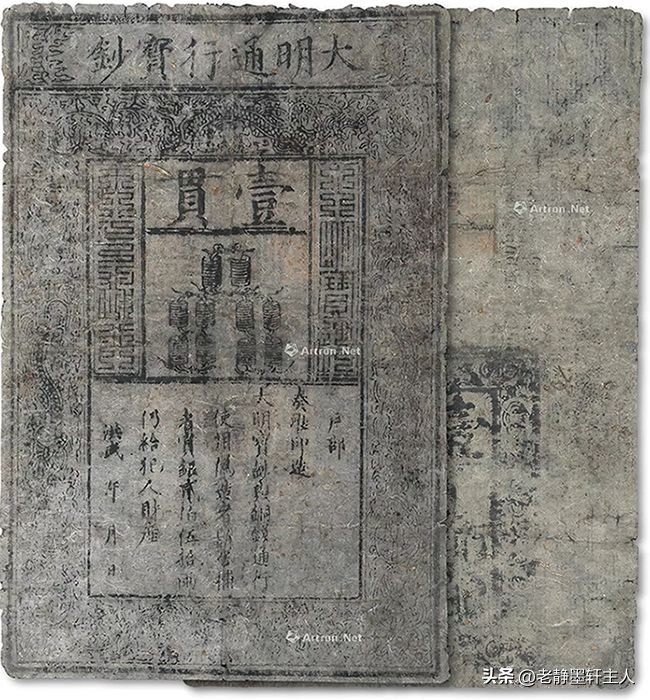 大明通行寶鈔
壹貫
戶部
奏准印造
大明寶鈔與銅錢通行
使用偽造者斬告捕
者賞銀貳佰伍拾兩
仍給犯人財產
洪武 年 月 日
Artron.Net
Artron.Net
Artron.Net
头条 @老静墨轩主人